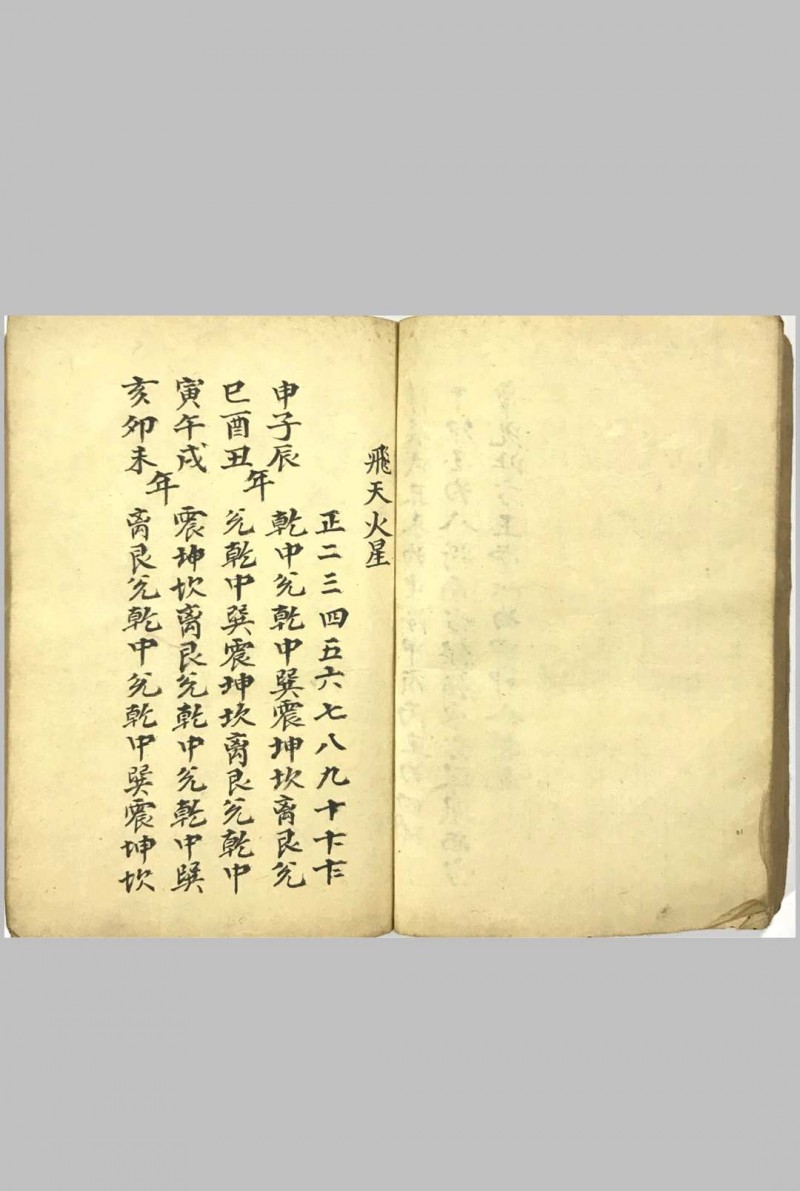 飛天火星
正二三四五六七八九十十一十二
申子辰
巳酉丑
年
乾中兊乾中巽震坤坎离艮兊
兊乾中巽震坤坎离艮兊乾中
寅午戌
亥卯未
年
震坤坎离艮兊乾中兊乾中巽
离艮兊乾中兊乾中巽震坤坎